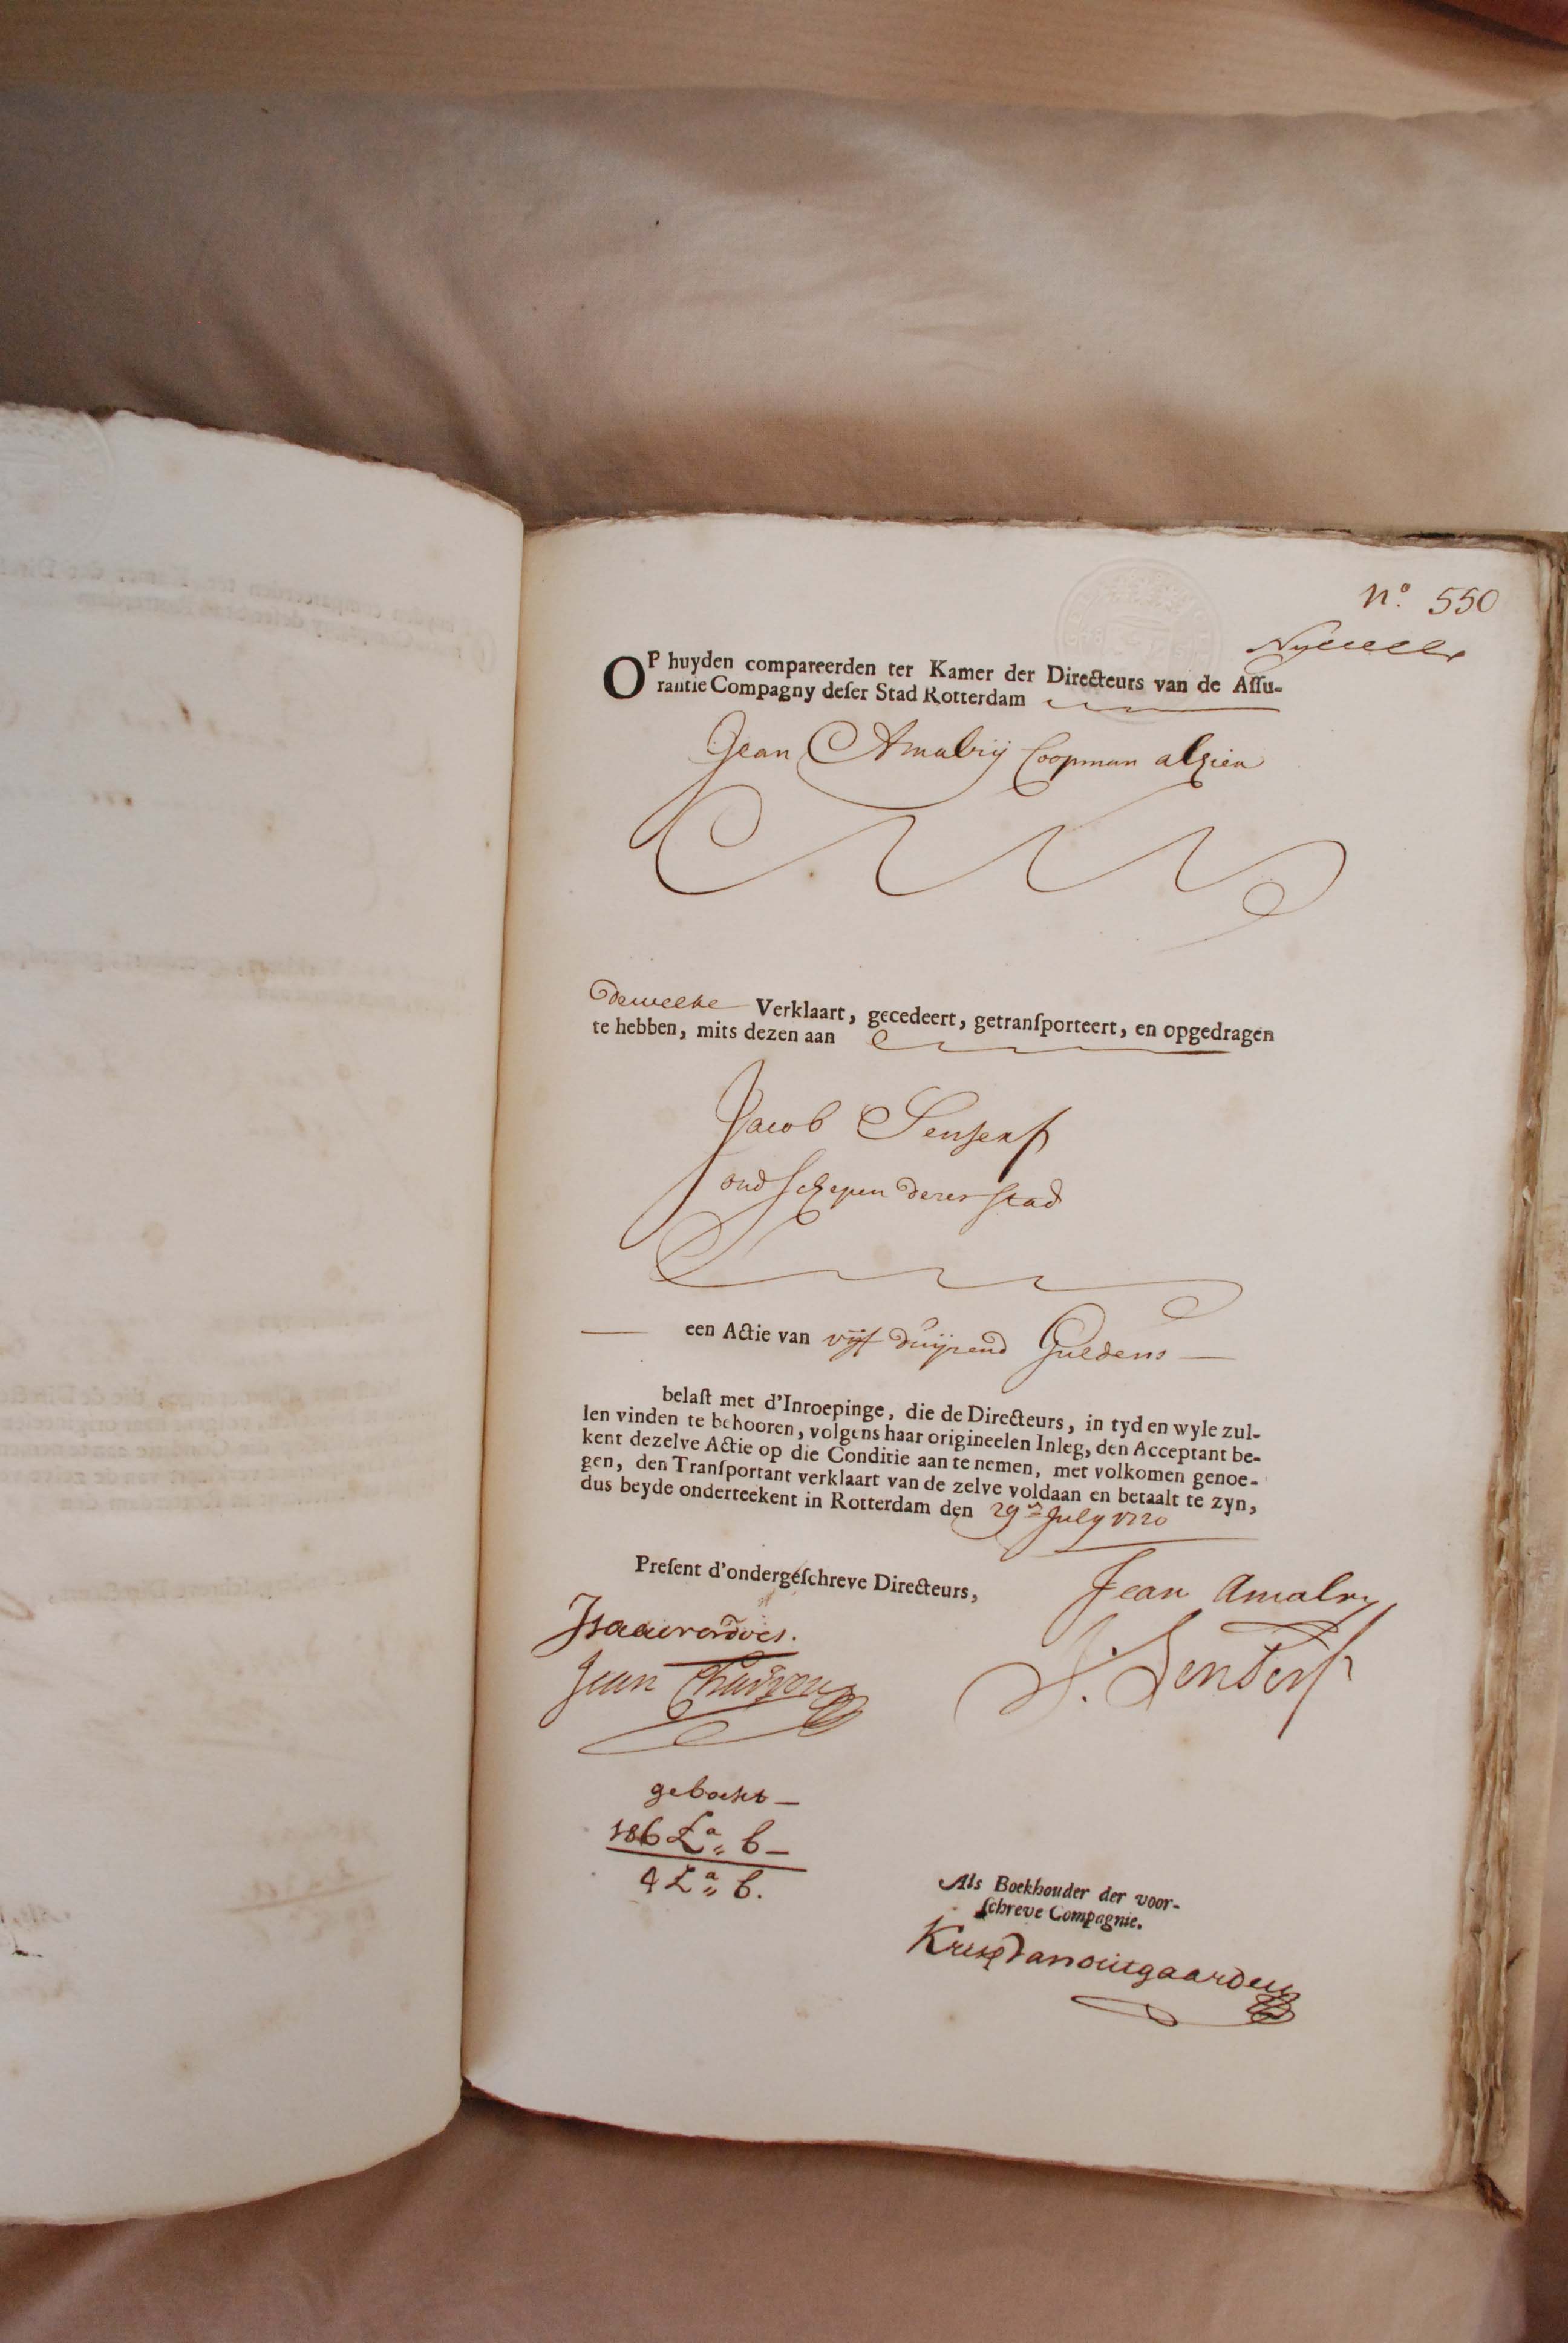 No. 550
OP huyden compareerden ter Kamer der Directeurs van de Aſſu-
rantie Compagny deſer Stad Rotterdam
Jean Amalrij Coopman alhier
Dewelke Verklaart, gecedeert, getranſporteert, en opgedragen
te hebben, mits dezen aan
Jacob Senserf
oud schepen deser stad
een Actie van vijf duijsend Guldens
belaſt met d'Inroepinge, die de Directeurs, in tyd en wyle zul-
len vinden te behooren, volgens haar origineelen Inleg, den Acceptant be-
kent dezelve Actie op die Conditie aan te nemen, met volkomen genoe-
gen, den Tranſportant verklaart van de zelve voldaan en betaalt te zyn,
dus beyde onderteekent in Rotterdam den 29 July 1720
Preſent d'ondergeſchreve Directeurs,
Jean Amalry
J. Senserf
Jean
geboekt
186 La. b
4 La. b.
Als Boekhouder der voor-
ſchreve Compagnie.